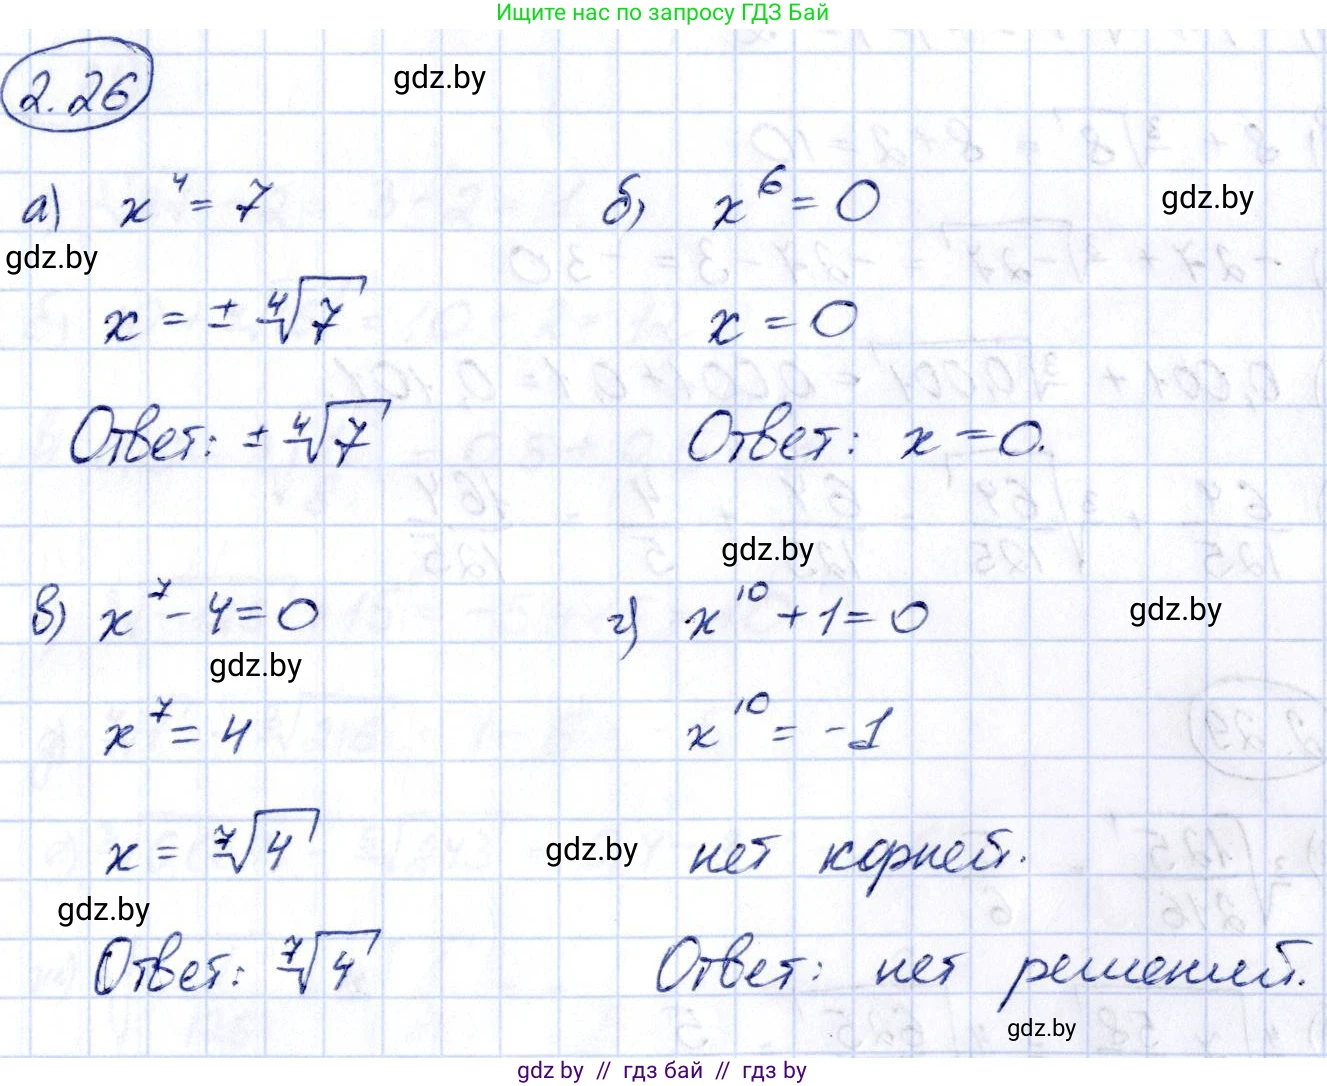 Ищите нас по запросу ГДЗ Бай
2.26
gdz.by
а) x⁴ = 7
б) x⁶ = 0
gdz.by
gdz.by
x = ± ⁴√7
x = 0
Ответ: ± ⁴√7
Ответ: x = 0.
gdz.by
в) x⁷ - 4 = 0
г) x¹⁰ + 1 = 0
gdz.by
gdz.by
x⁷ = 4
x¹⁰ = -1
x = ⁷√4
gdz.by
нет корней.
gdz.by
Ответ: ⁷√4
Ответ: нет решений.
gdz.by
gdz by // гдз бай // гдз by